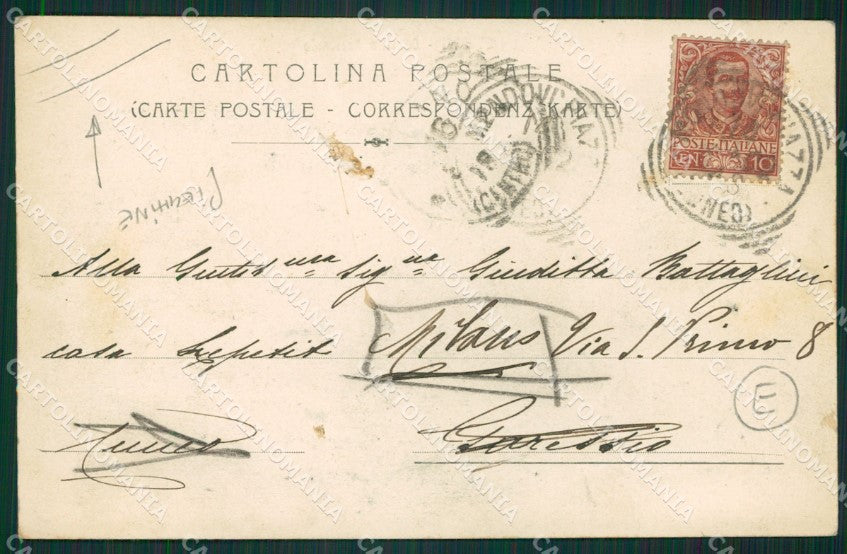 CARTOLINA POSTALE
(CARTE POSTALE - CORRESPONDENZ-KARTE)
POSTE ITALIANE
CEN. 10
MONDOVI
(CENTRO)
(CUNEO)
PIEGHINE
Alla Gentilma Signa Giuditta Battaglini
casa Milano Via S. Primo 8
E
Cuneo Garessio
CARTOLINOMANIA